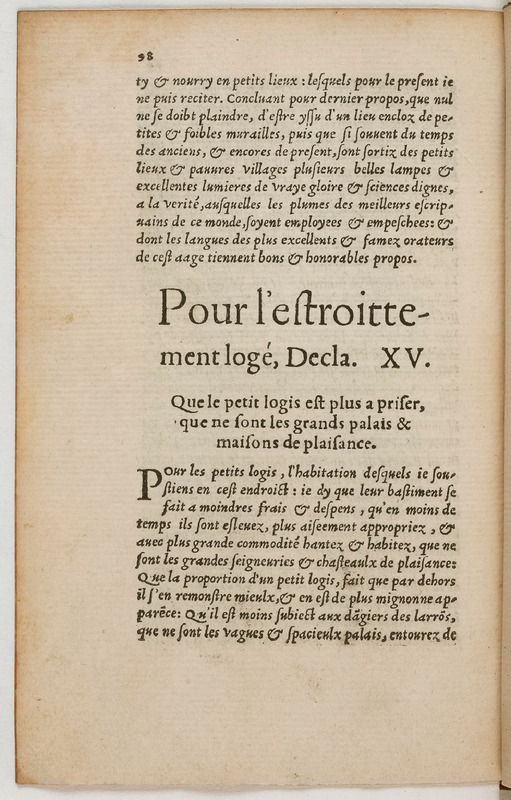 98
ty & nourry en petits lieux : lesquels pour le present ie
ne puis reciter. Concluant pour dernier propos, que nul
ne se doibt plaindre, d'estre yssu d'un lieu encloz de pe-
tites & foibles murailles, puis que si souuent du temps
des anciens, & encores de present, sont sortiz des petits
lieux & pauures villages plusieurs belles lampes &
excellentes lumieres de vraye gloire & sciences dignes,
a la verité, ausquelles les plumes des meilleurs escrip-
uains de ce monde, soyent employees & empeschees: &
dont les langues des plus excellents & famez orateurs
de cest aage tiennent bons & honorables propos.
Pour l'estroitte-
ment logé, Decla. XV.
Que le petit logis est plus a priser,
que ne sont les grands palais &
maisons de plaisance.
Pour les petits logis, l'habitation desquels ie sou-
stiens en cest endroict : ie dy que leur bastiment se
fait a moindres frais & despens, qu'en moins de
temps ils sont esleuez, plus aiseement appropriez, &
auec plus grande commodité hantez & habitez, que ne
sont les grandes seigneuries & chasteaulx de plaisance:
Que la proportion d'un petit logis, fait que par dehors
il s'en remonstre mieulx, & en est de plus mignonne ap-
parēce: Qu'il est moins subiect aux dāgiers des larrōs,
que ne sont les vagues & spacieulx palais, entourez de